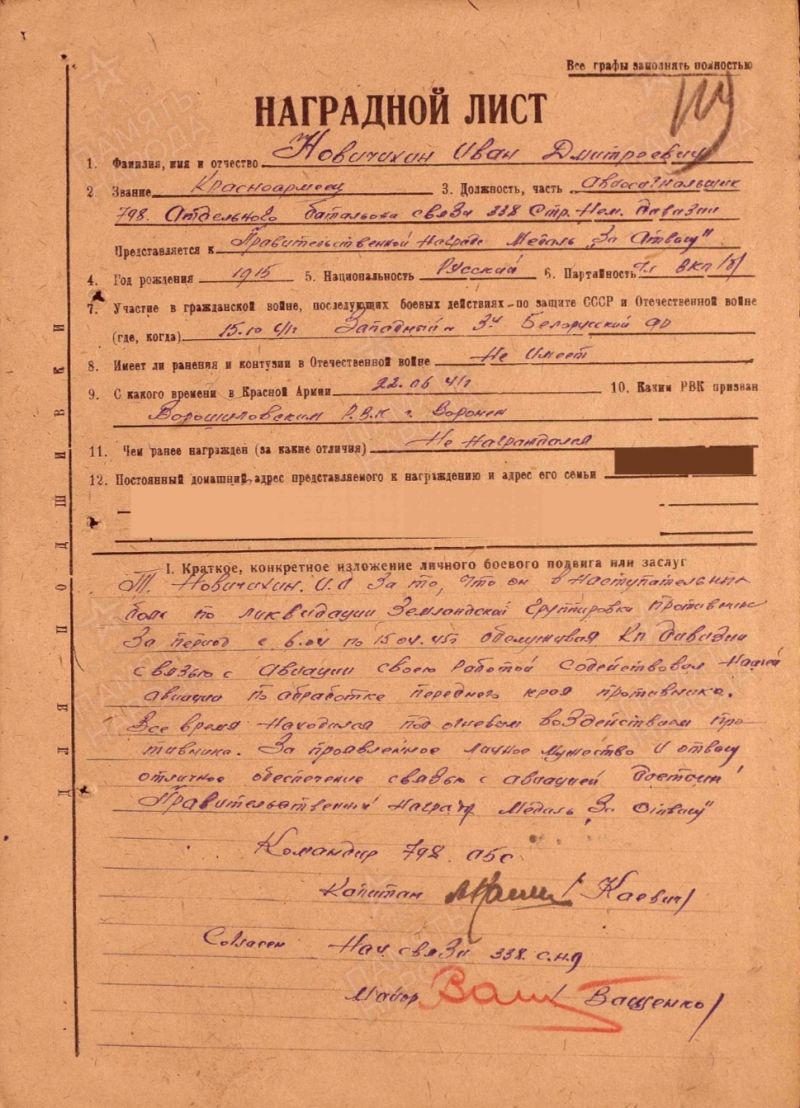 Все графы заполнять полностью
НАГРАДНОЙ ЛИСТ
1. Фамилия, имя и отчество Новичихин Иван Дмитреевич
2 Звание Красноармеец 3. Должность, часть
798. Отдельного батальона связи 338 Стр. Нем. дивизии
Представляется к Правительственной Награде Медаль „За Отвагу"
4. Год рождения 1915 5. Национальность Русский 6. Партийность чл ВКП/б/
7. Участие в гражданской войне, последующих боевых действиях по защите СССР и Отечественной войне
(где, когда) 15.10 41г Западный и 3й Белорусский ф
8. Имеет ли ранения и контузии в Отечественной войне Не имеет
9. С какого времени в Красной Армии 22.06 41г 10. Каким РВК призван
Ворошиловским Р.В.К г. Воронеж
11. Чем ранее награжден (за какие отличия) Не Награждался
12. Постоянный домашний адрес представляемого к награждению и адрес его семьи
I. Краткое, конкретное изложение личного боевого подвига или заслуг
Т. Новичихин. И.Д За то, что он в наступательных
боях по ликвидации Земландской Группировки противника
За период с 6.04 по 15.04.45г обслуживая КП дивизии
связью с авиации своею работой содействовал Нашей
авиации по обработке переднего края противника.
Все время Находился под огневым воздействием про
тивника. За проявленное личное мужество и отвагу
отличное обеспечение связью с авиацией достоин
Правительственной Награде Медаль „За Отвагу"
Командир 798 обс
Капитан /Каевич/
Согласен Нач связи 338. с.н.д
Майор Ващ /Ващенко/
ДЛЯ ПОДШИВКИ
ПАМЯТЬ НАРОДА